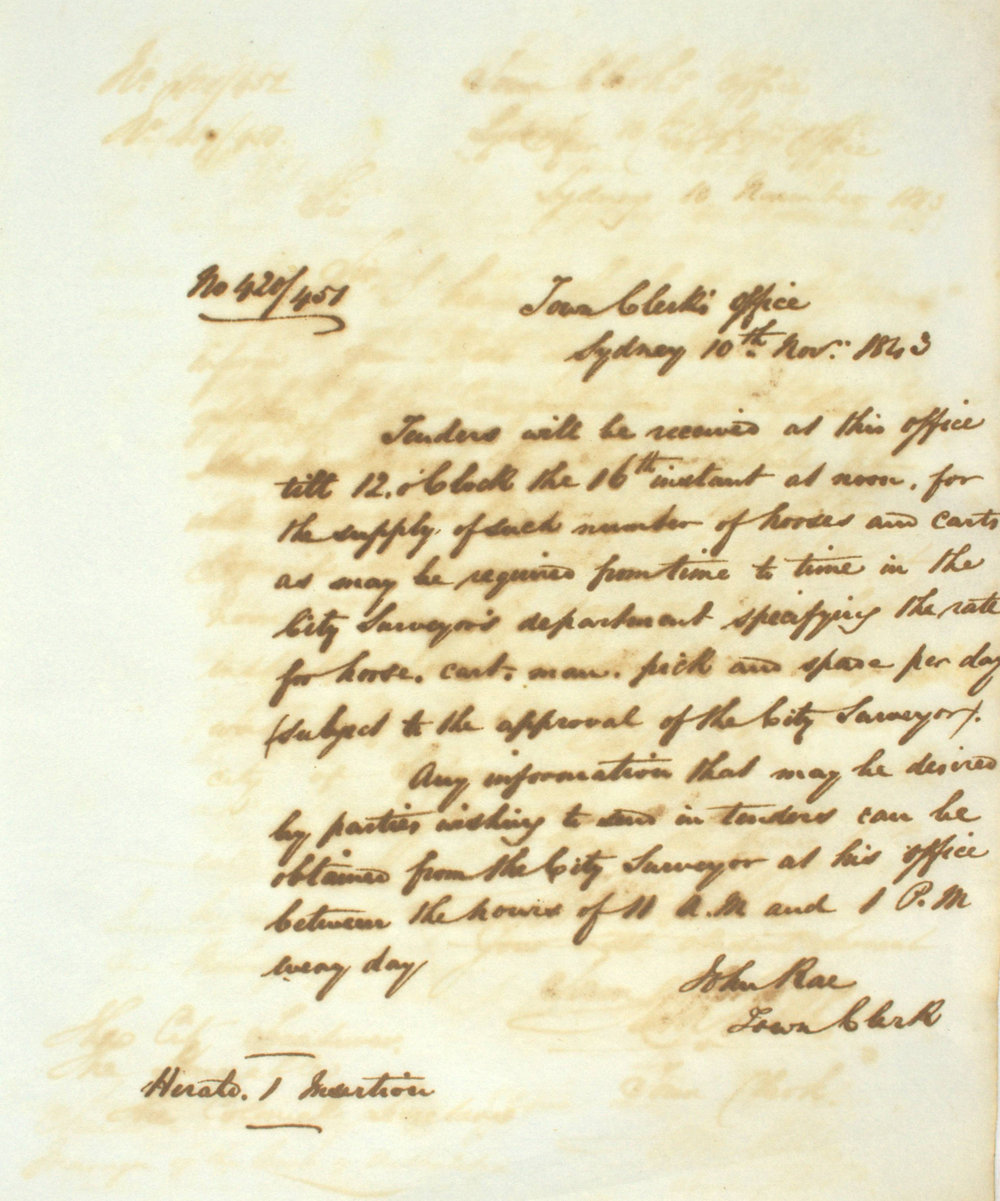 No 420/451
Town Clerk's office
Sydney 10th Nov. 1843
Tenders will be received at this office
till 12. o'Clock the 16th instant at noon, for
the supply of such number of horses and carts
as may be required from time to time in the
City Surveyor's department specifying the rate
for horse, cart, man, pick and spade per day
(subject to the approval of the City Surveyor).
Any information that may be desired
by parties wishing to send in tenders can be
obtained from the City Surveyor at his office
between the hours of 11 A.M and 1 P.M
every day
John Rae
Town Clerk
Herald. 1 Insertion